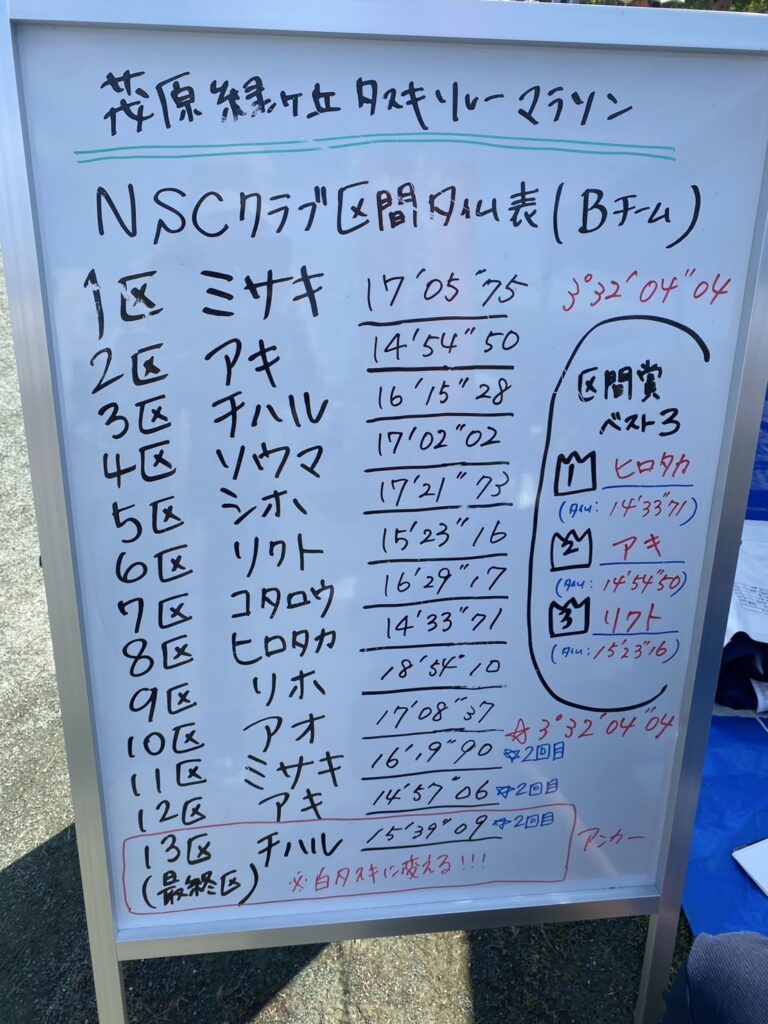 茂原緑ヶ丘タスキリレーマラソン
NSCクラブ区間タイム表(Bチーム)
1区 ミサキ 17′05″75
3°32′04″04
2区 アキ 14′54″50
3区 チハル 16′15″28
4区 ソウマ 17′02″02
5区 シホ 17′21″73
6区 リクト 15′23″16
7区 コタロウ 16′29″17
8区 ヒロタカ 14′33″71
9区 リホ 18′54″10
10区 アオ 17′08″37
11区 ミサキ 16′19″90 ☆2回目
12区 アキ 14′57″06 ☆2回目
13区 チハル 15′39″09 ☆2回目
(最終区) ※白タスキに変える!!!
アンカー
区間賞
ベスト3
1 ヒロタカ
(タイム:14′33″71)
2 アキ
(タイム:14′54″50)
3 リクト
(タイム:15′23″16)
☆3°32′04″04